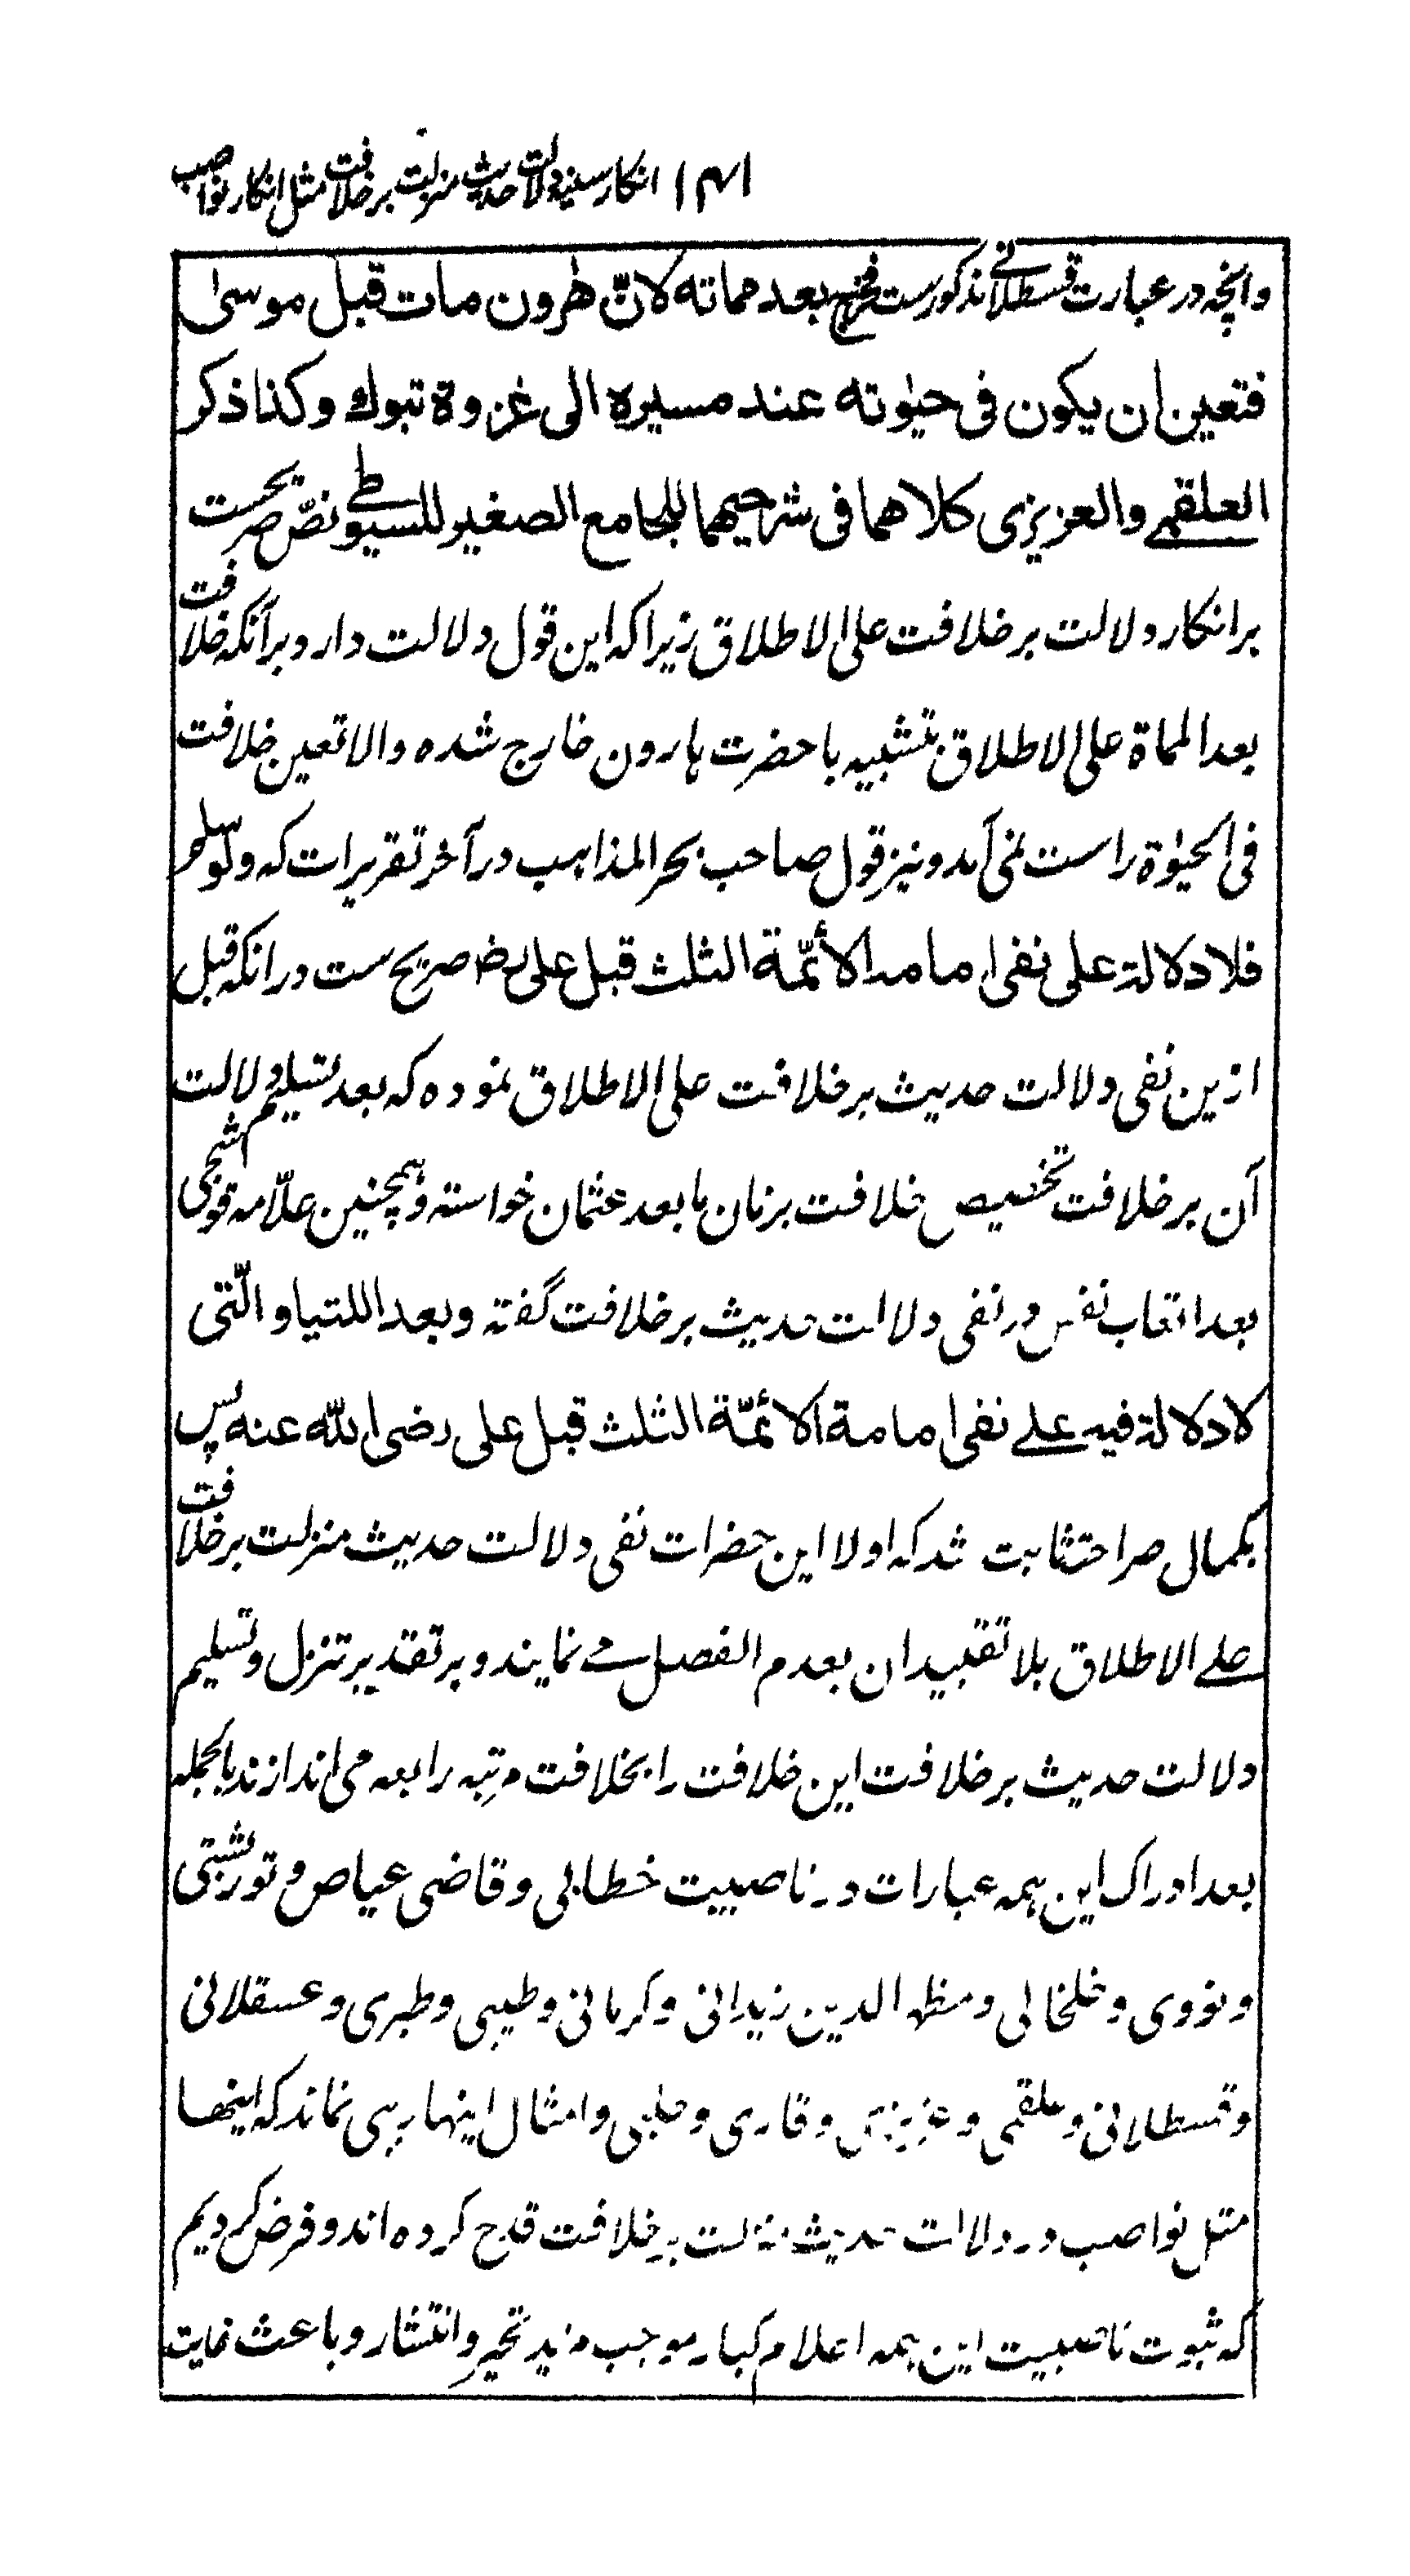 ۱۴۱ انکار سنیه دلالت حدیث منزلت بر خلافت مثل انکار نواصب
وانچه در عبارت قسطلانی مذکورست فخرج بعد مماته لانّ هٰرون مات قبل موسیٰ
فتعین ان یکون فی حیٰوته عند مسیره الی غزوة تبوك وکذا ذکر
العلقمی والعزیزی کلاهما فی شرحیهما للجامع الصغیر للسیوطی نصّ صریحست
بر انکار دلالت بر خلافت علی الاطلاق زیرا که این قول دلالت دارد بر آنکه خلافت
بعد المماة علی الاطلاق بتشبیه با حضرت هارون خارج شده والا تعین خلافت
فی الحیٰوة راست نمی آمد و نیز قول صاحب بحر المذاهب در آخر تقریرات که ولو سلم
فلا دلالة علی نفی امامة الأئمّة الثلث قبل علی رض صریح ست در انکه قبل
ازین نفی دلالت حدیث بر خلافت علی الاطلاق نموده که بعد تسلیم دلالت
آن بر خلافت تخصیص خلافت بزمان ما بعد عثمان خواسته و همچنین علّامه قوشجی
بعد اتعاب نفس در نفی دلالت حدیث بر خلافت گفته وبعد اللتیا و الّتی
لا دلالة فیه علی نفی امامة الأئمّة الثلث قبل علی رضی الله عنه پس
بکمال صراحت ثابت شد که اولا این حضرات نفی دلالت حدیث منزلت بر خلافت
علی الاطلاق بلا تقیید ان بعدم الفصل می نمایند و بر تقدیر تنزل و تسلیم
دلالت حدیث بر خلافت این خلافت را بخلافت مرتبه رابعه می اندازند بالجمله
بعد ادراک این همه عبارات در ناصبیت خطابی و قاضی عیاض و توربشتی
و نووی و خلخالی و مظهر الدین زیدانی و کرمانی و طیبی و طبری و عسقلانی
و قسطلانی و علقمی و عزیزی و قاری و حلبی و امثال اینها ریبی نماند که اینها
مثل نواصب در دلالت حدیث منزلت بر خلافت قدح کرده اند و فرض کردیم
که ثبوت ناصبیت این همه اعلام کبار موجب مزید تحیر و انتشار و باعث غایت